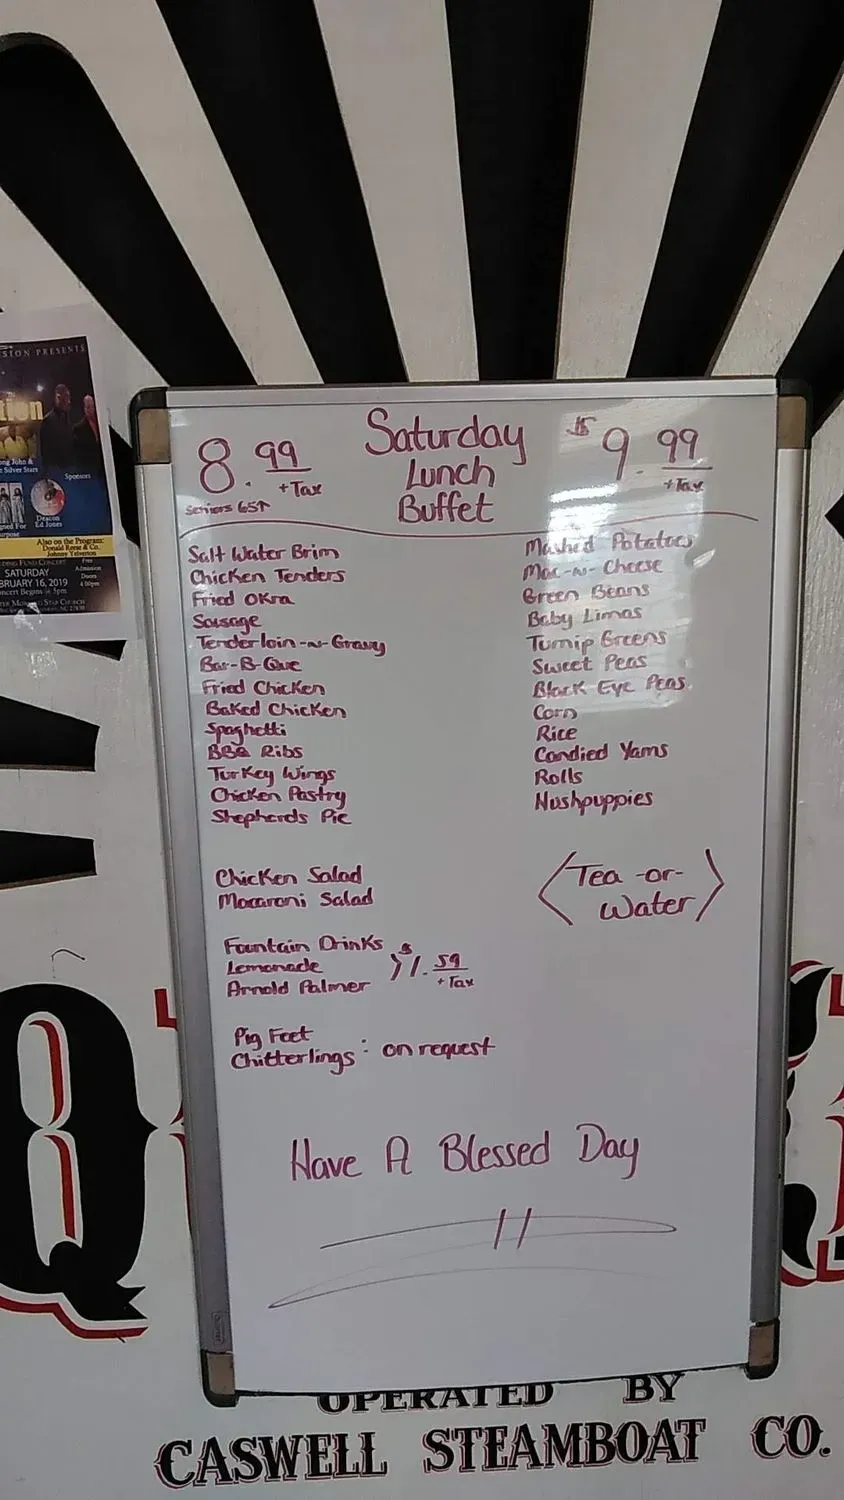 Saturday
Lunch
Buffet
8.99
+Tax
Seniors 65↑
$9.99
+Tax
Salt Water Brim
Chicken Tenders
Fried Okra
Sausage
Tenderloin-N-Gravy
Bar-B-Que
Fried Chicken
Baked Chicken
Spaghetti
BBQ Ribs
Turkey Wings
Chicken Pastry
Shepherds Pie
Chicken Salad
Macaroni Salad
Fountain Drinks
Lemonade
Arnold Palmer
$1.59
+Tax
Pig Feet
Chitterlings : on request
Mashed Potatoes
Mac-N-Cheese
Green Beans
Baby Limas
Turnip Greens
Sweet Peas
Black Eye Peas
Corn
Rice
Candied Yams
Rolls
Hushpuppies
Tea -or-
Water
Have A Blessed Day
SION PRESENTS
tion
ong John &
Silver Stars
Sponsors
Deacon
Ed Jones
Also on the Program:
Donald Reese & Co.
Johnny Yelverton
DING FUND CONCERT
SATURDAY
BRUARY 16, 2019
ncert Begins @ 5pm
Free
Admission
Doors
4:00pm
Q
OPERATED BY
CASWELL STEAMBOAT CO.